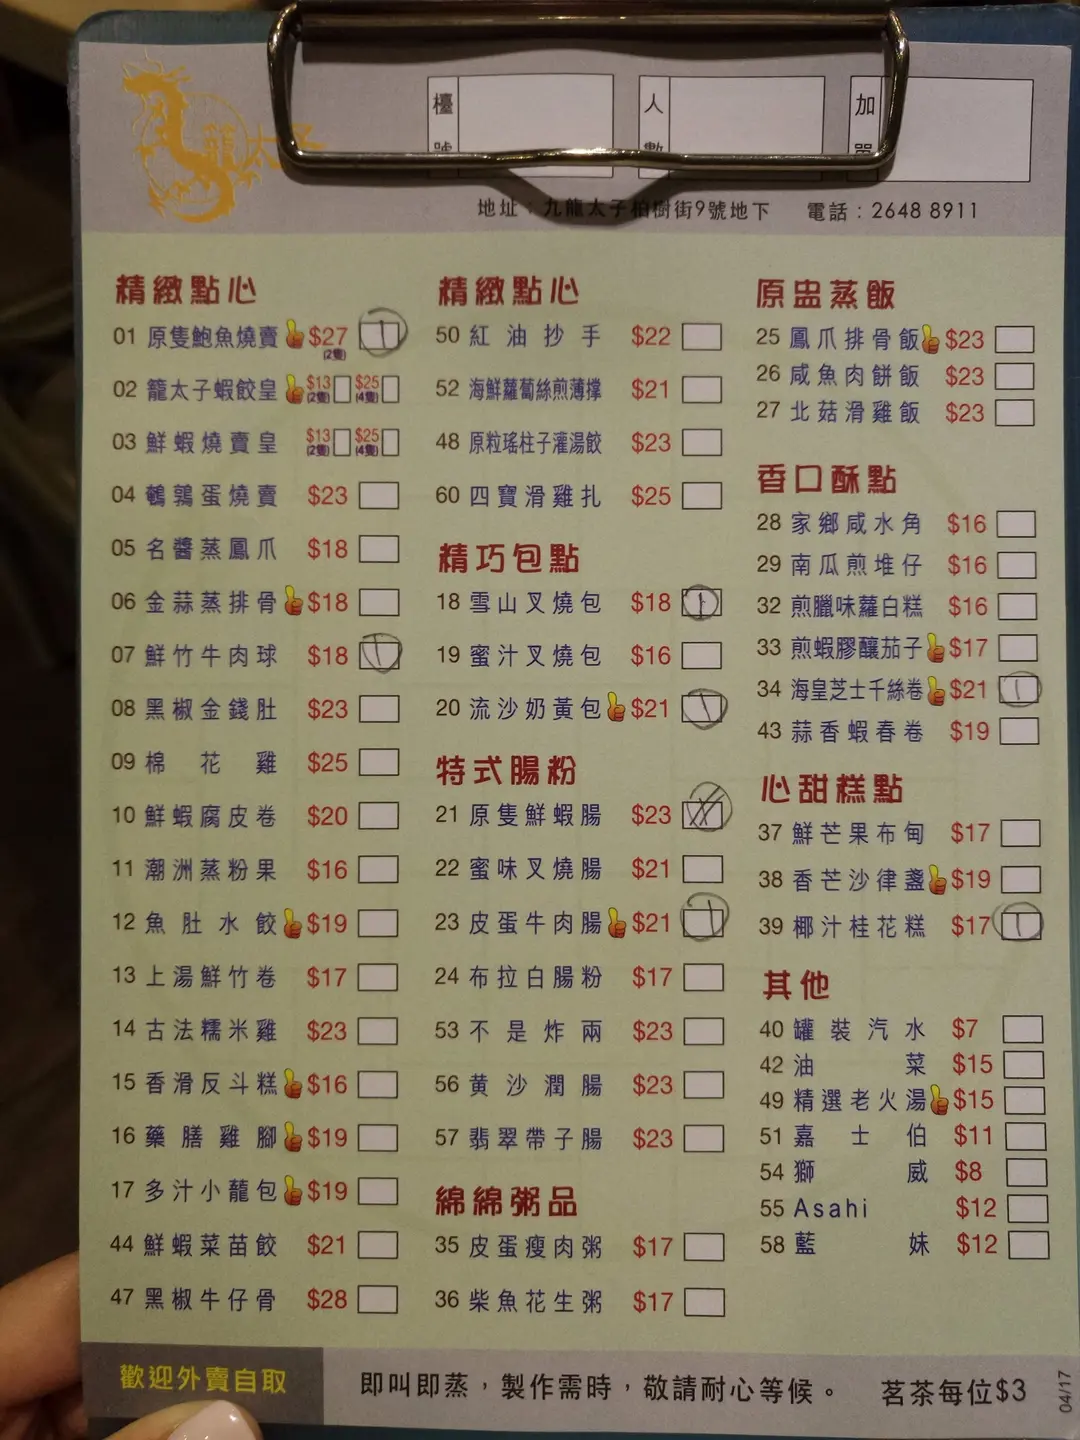 龍太子
檯號
人數
加單
地址：九龍太子柏樹街9號地下 電話：2648 8911
精緻點心
01 原隻鮑魚燒賣 $27 (2隻) 1
02 籠太子蝦餃皇 $13 (2隻) $25 (4隻)
03 鮮蝦燒賣皇 $13 (2隻) $25 (4隻)
04 鵪鶉蛋燒賣 $23
05 名醬蒸鳳爪 $18
06 金蒜蒸排骨 $18
07 鮮竹牛肉球 $18 1
08 黑椒金錢肚 $23
09 棉花雞 $25
10 鮮蝦腐皮卷 $20
11 潮洲蒸粉果 $16
12 魚肚水餃 $19
13 上湯鮮竹卷 $17
14 古法糯米雞 $23
15 香滑反斗糕 $16
16 藥膳雞腳 $19
17 多汁小蘢包 $19
44 鮮蝦菜苗餃 $21
47 黑椒牛仔骨 $28
精緻點心
50 紅油抄手 $22
52 海鮮蘿蔔絲煎薄撑 $21
48 原粒瑤柱子灌湯餃 $23
60 四寶滑雞扎 $25
精巧包點
18 雪山叉燒包 $18 1
19 蜜汁叉燒包 $16
20 流沙奶黃包 $21 1
特式腸粉
21 原隻鮮蝦腸 $23
22 蜜味叉燒腸 $21
23 皮蛋牛肉腸 $21 1
24 布拉白腸粉 $17
53 不是炸兩 $23
56 黄沙潤腸 $23
57 翡翠帶子腸 $23
綿綿粥品
35 皮蛋瘦肉粥 $17
36 柴魚花生粥 $17
原盅蒸飯
25 鳳爪排骨飯 $23
26 咸魚肉餅飯 $23
27 北菇滑雞飯 $23
香口酥點
28 家鄉咸水角 $16
29 南瓜煎堆仔 $16
32 煎臘味蘿白糕 $16
33 煎蝦膠釀茄子 $17
34 海皇芝士千絲卷 $21 1
43 蒜香蝦春卷 $19
心甜糕點
37 鮮芒果布甸 $17
38 香芒沙律盞 $19
39 椰汁桂花糕 $17 1
其他
40 罐裝汽水 $7
42 油菜 $15
49 精選老火湯 $15
51 嘉士伯 $11
54 獅威 $8
55 Asahi $12
58 藍妹 $12
歡迎外賣自取
即叫即蒸，製作需時，敬請耐心等候。 茗茶每位$3
04/17